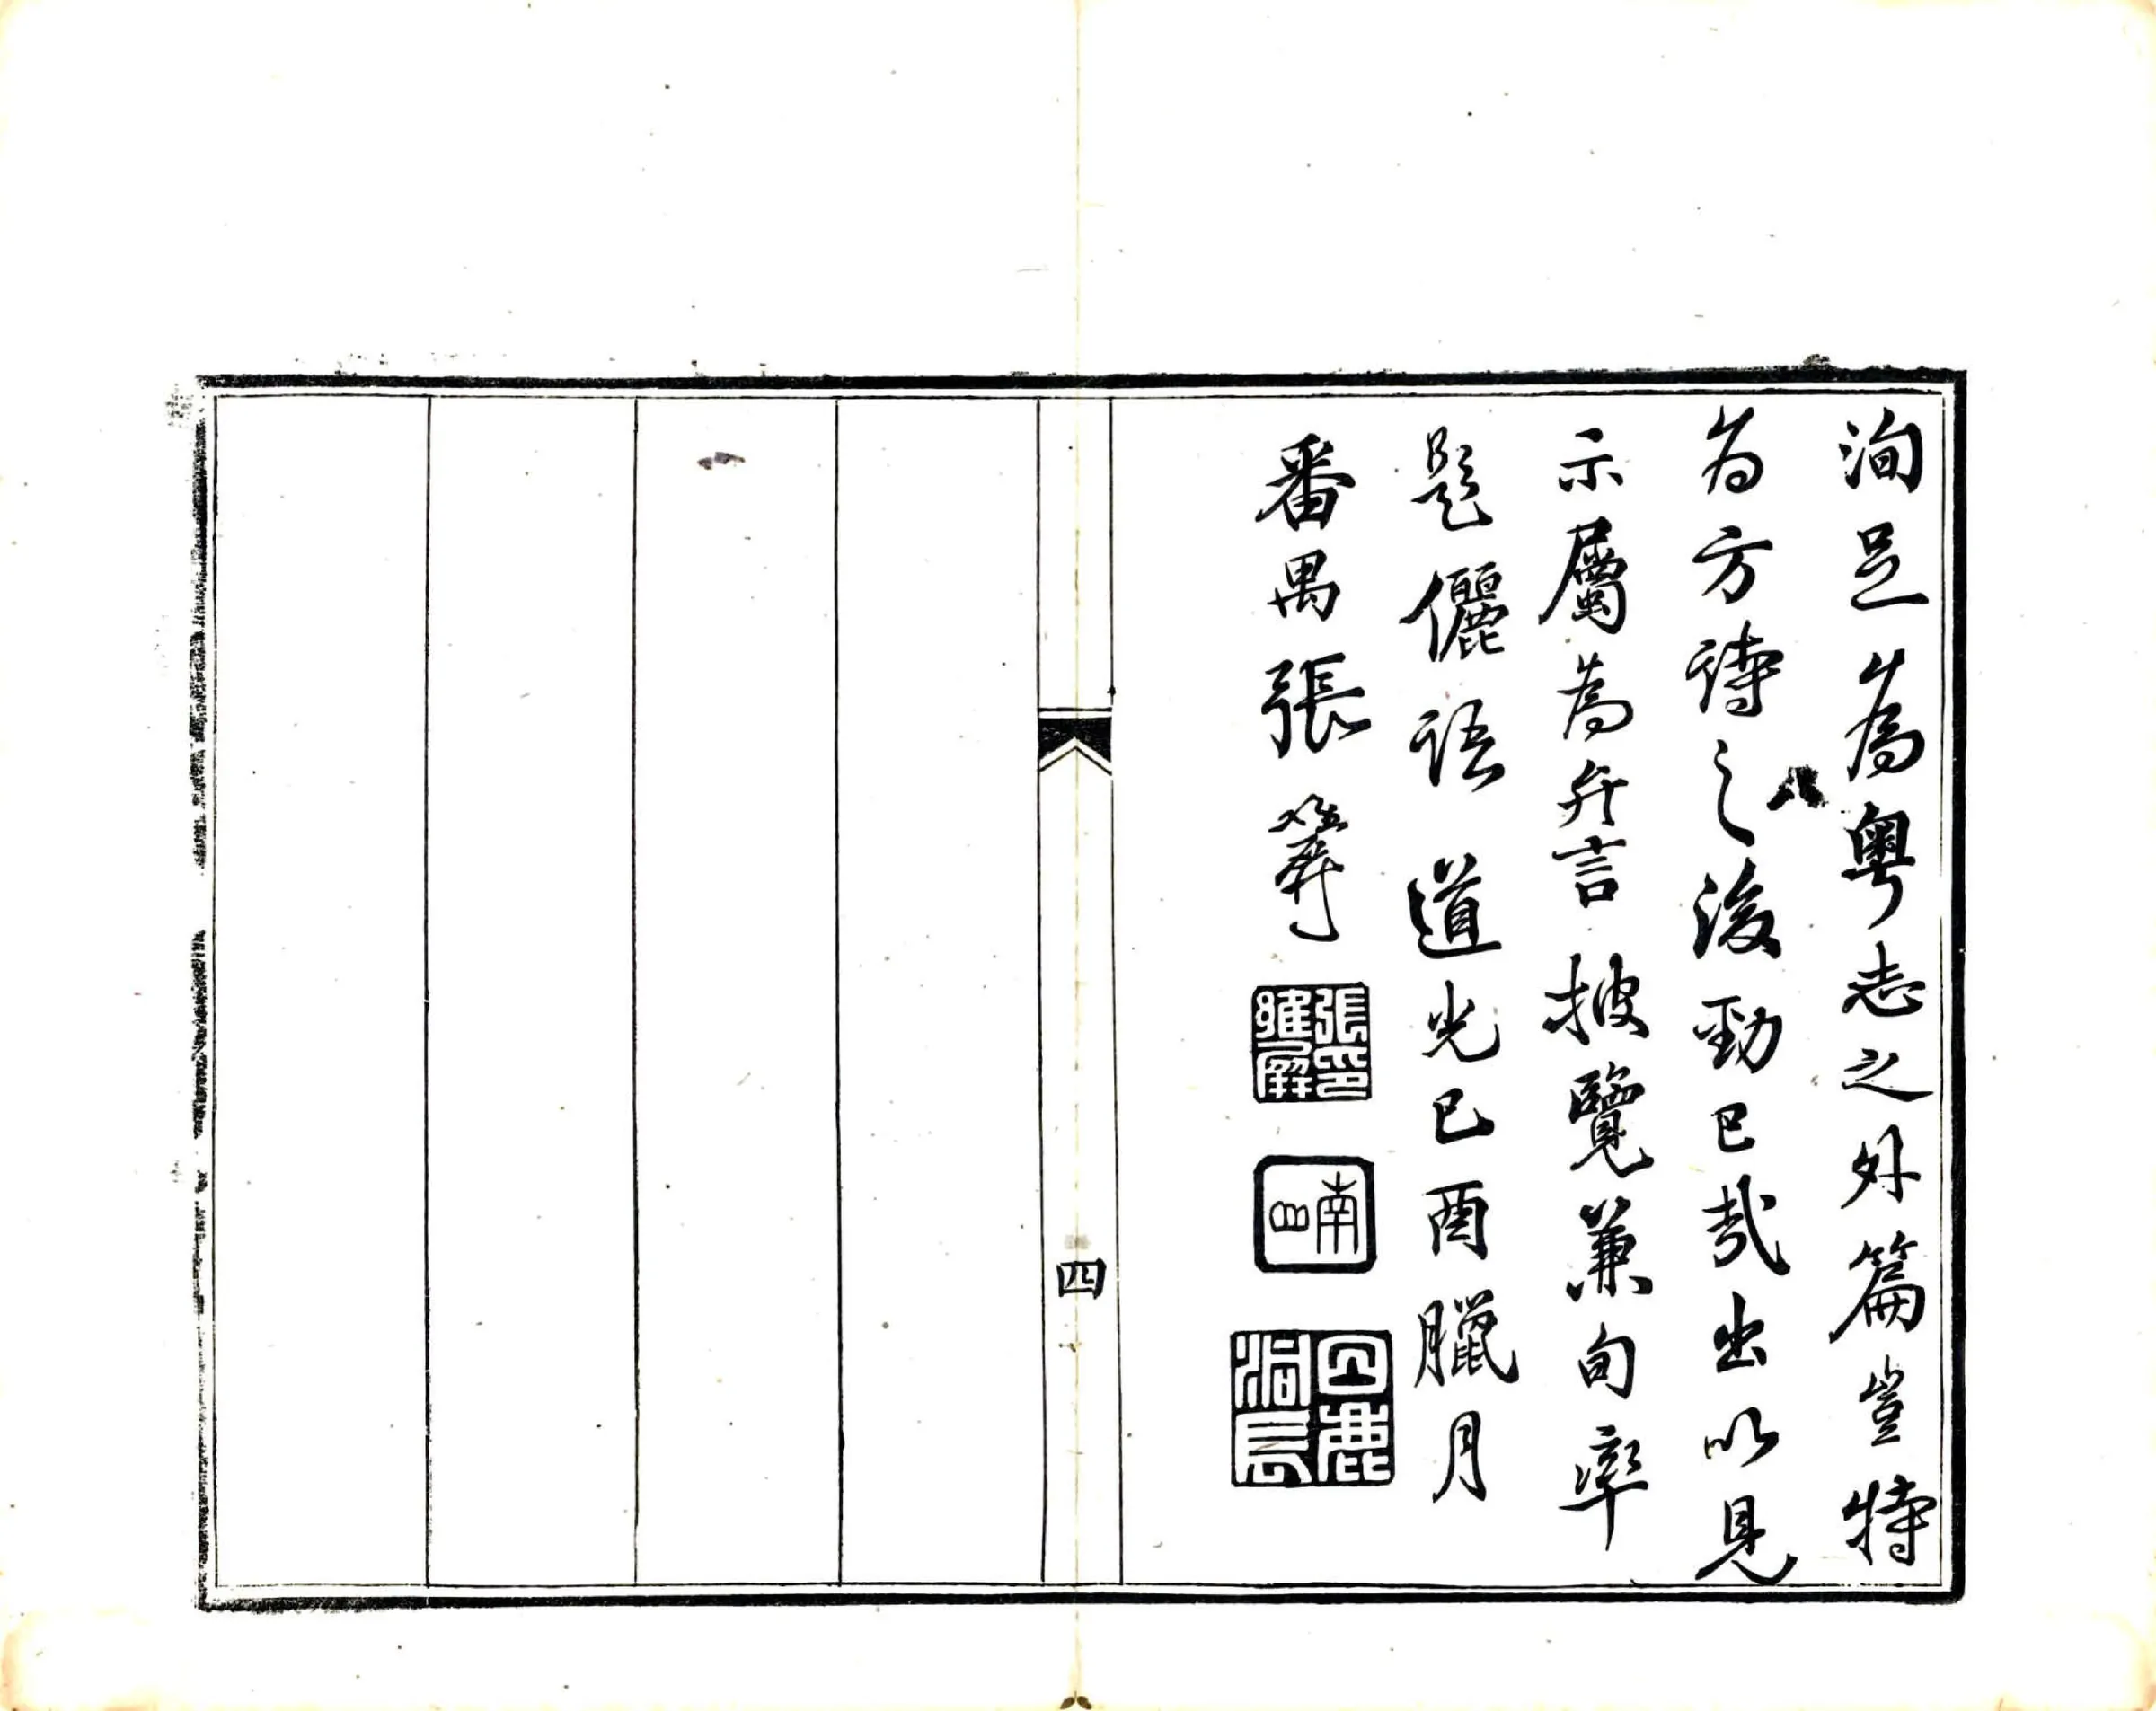 洵足為粵志之外篇豈特
為方詩之後勁已哉出以見
示屬為弁言披覽兼旬率
題儷語 道光己酉臘月
番禺張維屏
張印維屏
南山
白鹿洞長
四